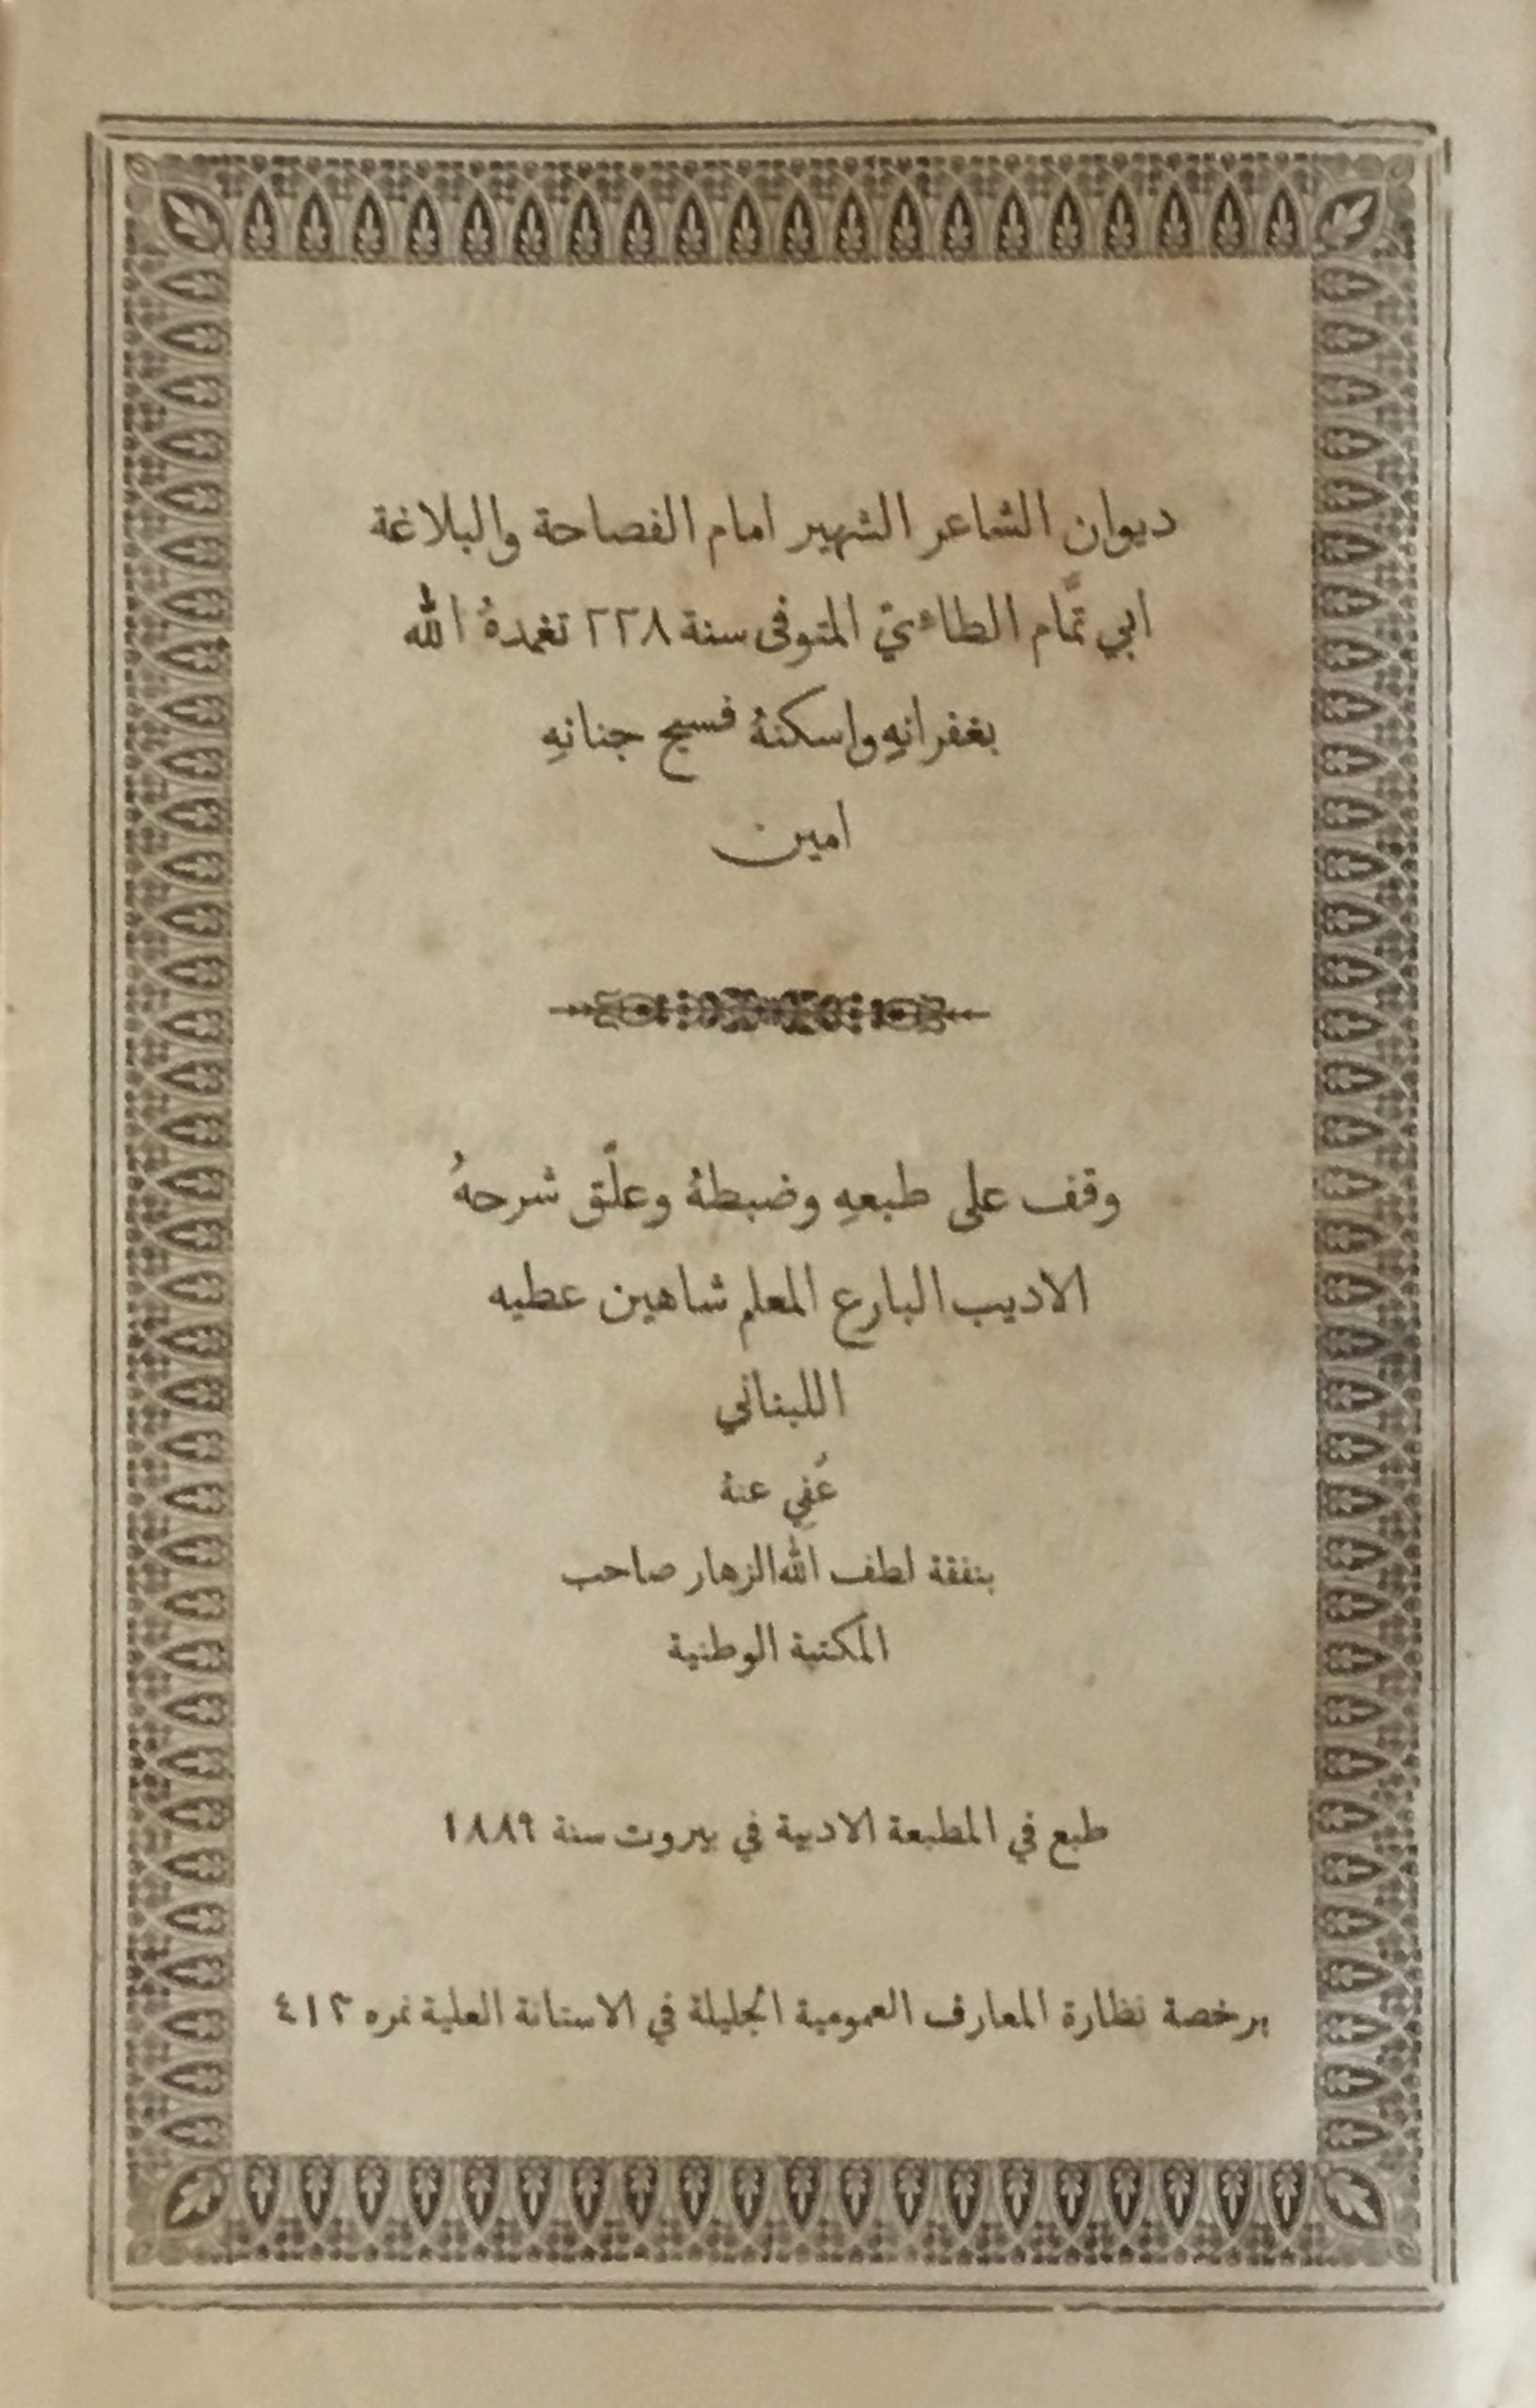 ديوان الشاعر الشهير امام الفصاحة والبلاغة
ابي تمّام الطاءيّ المتوفى سنة ٢٢٨ تغمدهُ الله
بغفرانهِ واسكنهُ فسيح جنانهِ
امين
وقف على طبعهِ وضبطهُ وعلّق شرحهُ
الاديب البارع المعلم شاهين عطيه
اللبناني
عُفي عنهُ
بنفقة لطف الله الزهار صاحب
المكتبة الوطنية
طبع في المطبعة الادبية في بيروت سنة ١٨٨٩
برخصة نظارة المعارف العمومية الجليلة في الاستانة العلية نمره ٤١٢